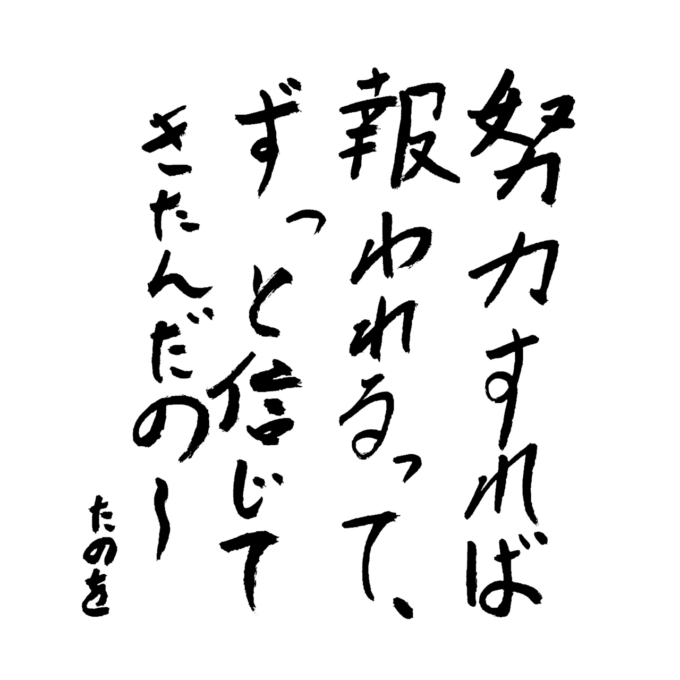 努力すれば
報われるって、
ずっと信じて
きたんだの〜
たのを